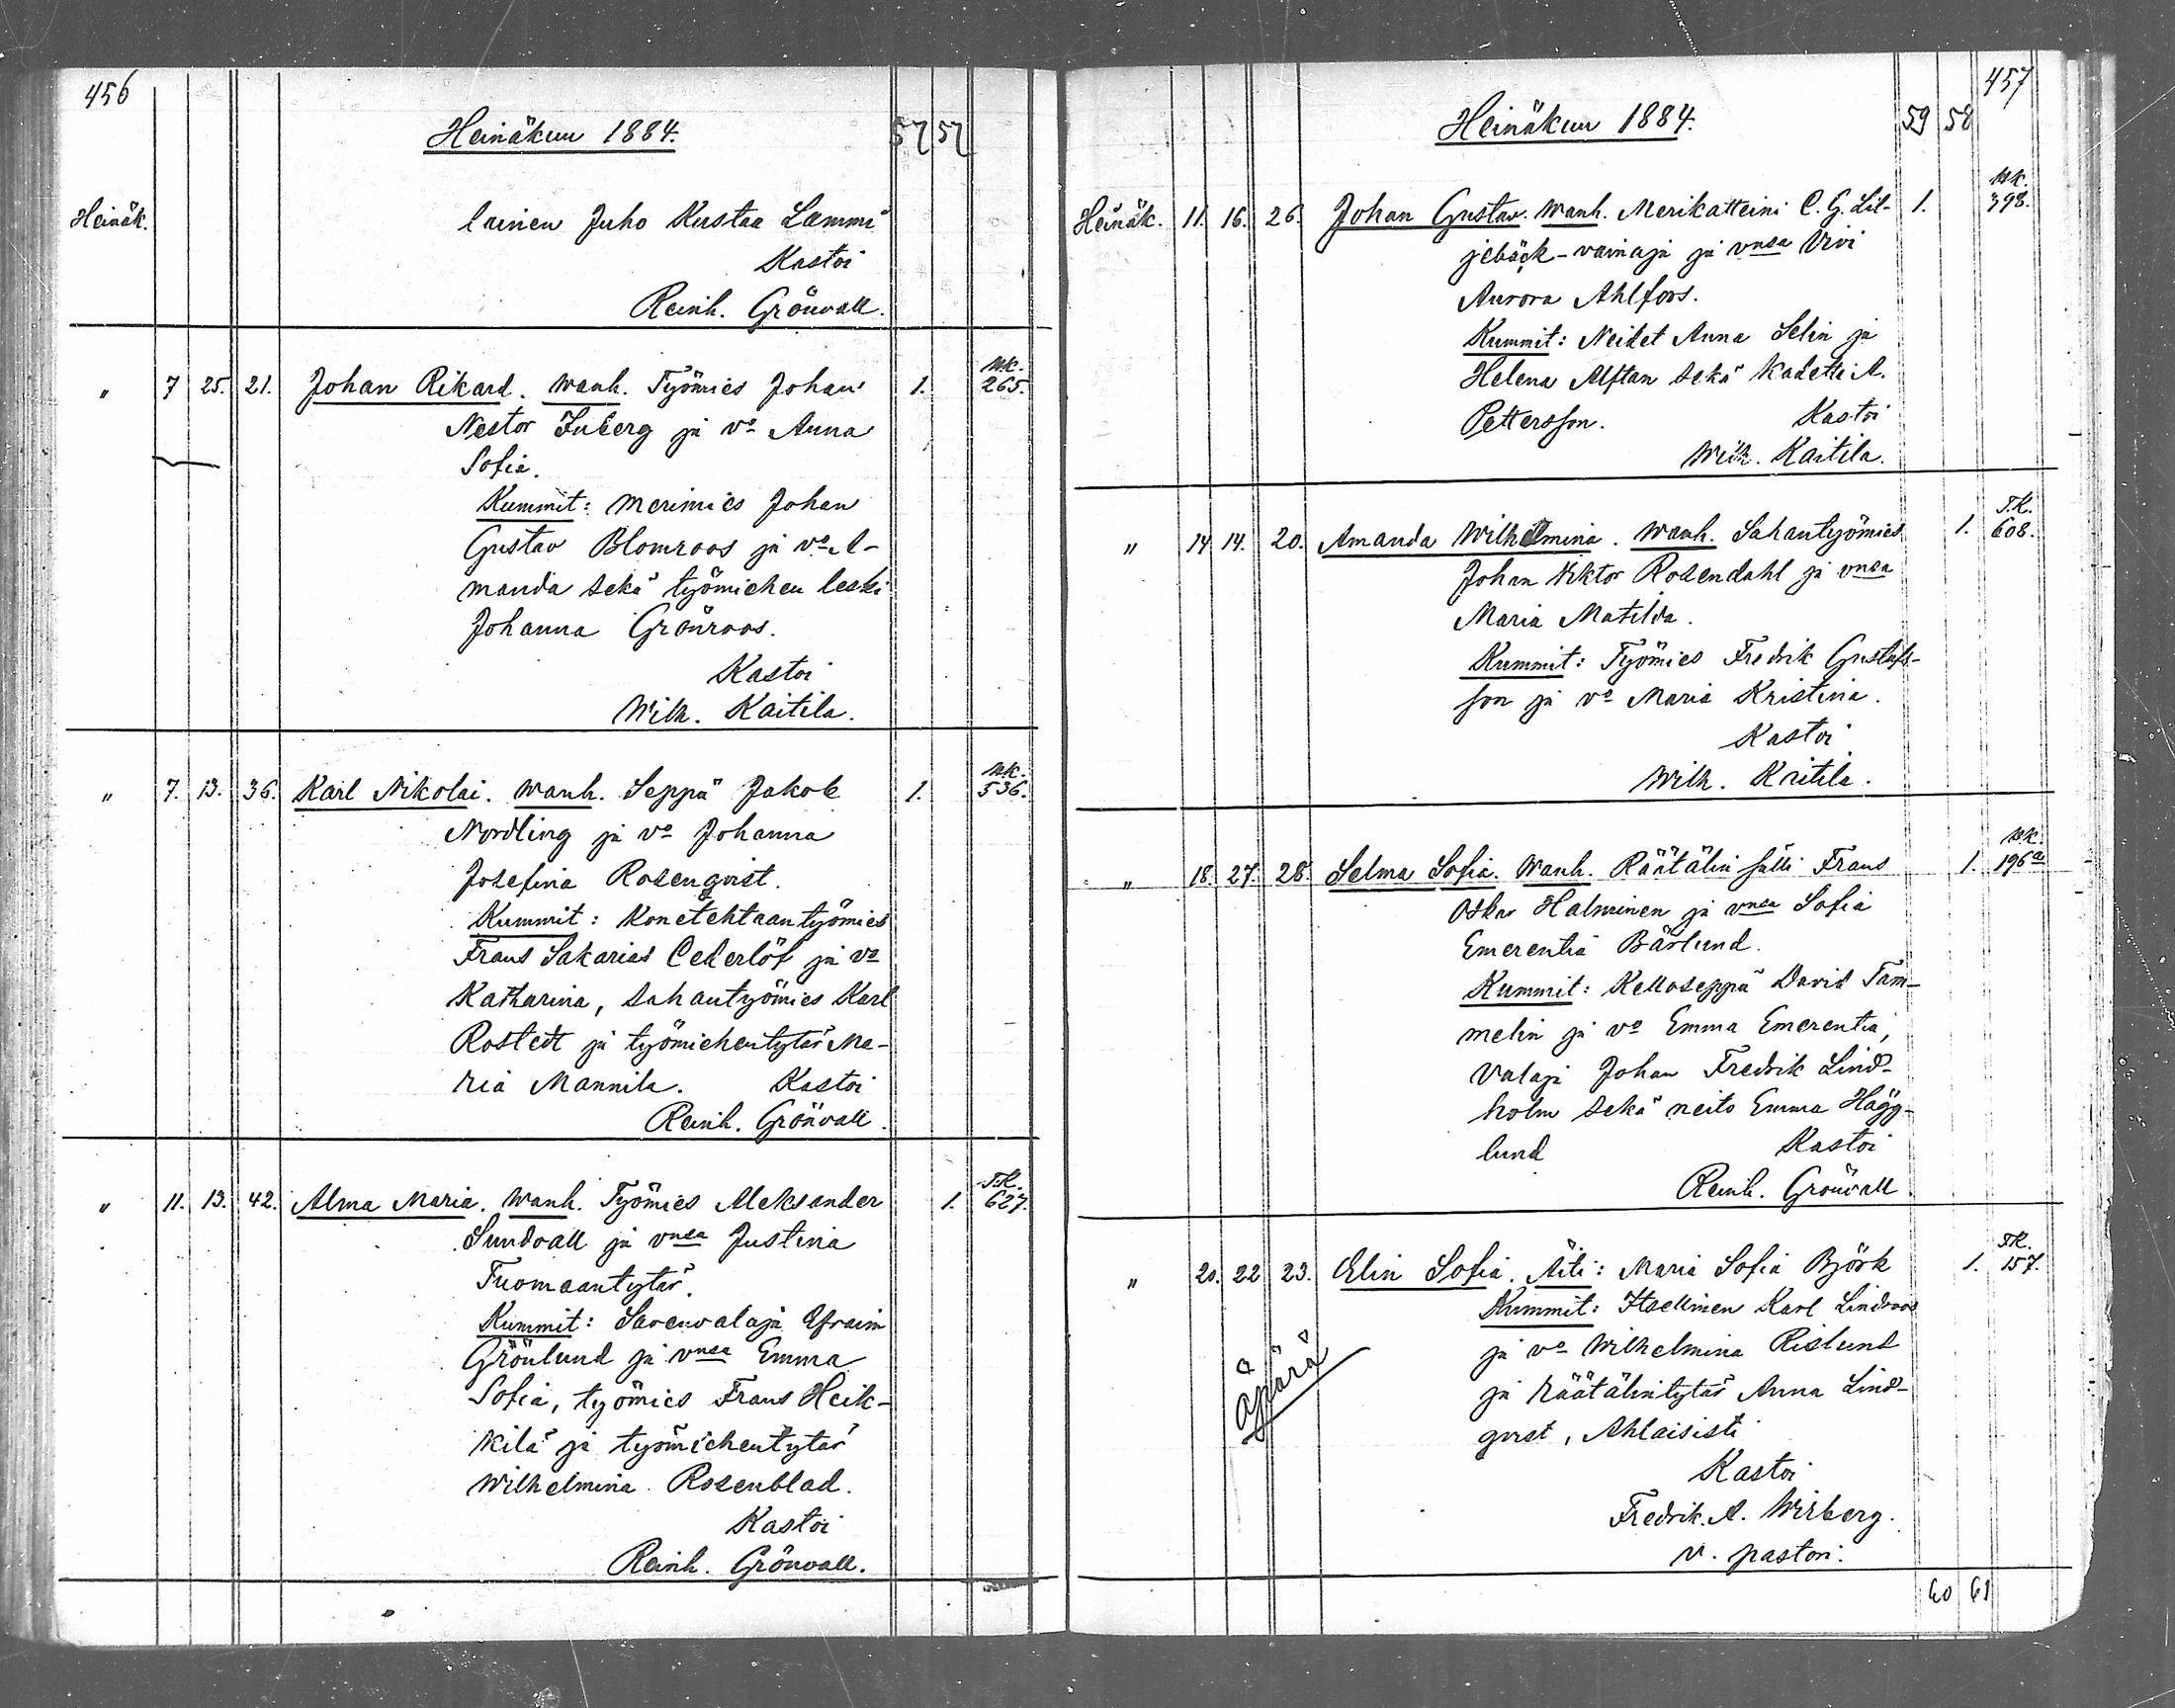 456
Heinäkuu 1884. 57 57
Heinäk. lainen Juho Kustaa Lammi
Kastoi
Reinh. Grönvall.
" 7 25. 21. Johan Rikard. Wanh. Työmies Johan 1. WK. 265.
Nestor Inberg ja vo Anna
Sofia.
Kummit: Merimies Johan
Gustav Blomroos ja vo A-
manda sekä työmiehen leski
Johanna Grönroos.
Kastoi
Wilh. Kaitila.
" 7. 13. 36. Karl Nikolai. Wanh. Seppä Jakob 1. WK. 536.
Nordling ja vo Johanna
Josefina Rosenqvist.
Kummit: Konetehtaantyömies
Frans Sakarias Cederlöf ja vo
Katharina, sahantyömies Karl
Rostedt ja työmiehentytär Ma-
ria Mannila. Kastoi
Reinh. Grönvall.
" 11. 13. 42. Alma Maria. Wanh. Työmies Aleksander 1. T.K. 627.
Sundvall ja vnsa Justina
Tuomaantytär.
Kummit: Savenvalaja Efraim
Grönlund ja vnsa Emma
Sofia, työmies Frans Heik-
kilä ja työmiehentytär
Wilhelmina Rosenblad.
Kastoi
Reinh. Grönvall.
457
Heinäkuu 1884. 59 58
Heinäk. 11. 16. 26. Johan Gustav. Wanh. Merikatteini C. G. Lil- 1. WK. 398.
jebäck-vainaja ja vnsa Vivi
Aurora Ahlfors.
Kummit: Neidet Anna Selin ja
Helena Alftan sekä Kadetti A.
Pettersson. Kastoi
Wilh. Kaitila.
" 14 14. 20. Amanda Wilhelmina. Wanh. Sahantyömies 1. T.K. 608.
Johan Viktor Rosendahl ja vnsa
Maria Matilda.
Kummit: Työmies Fredrik Gustafs-
son ja vo Maria Kristina.
Kastoi
Wilh. Kaitila.
" 18. 27. 28. Selma Sofia. Wanh. Räätälin sälli Frans 1. WK. 196a
Oskar Halminen ja vnsa Sofia
Emerentia Bärlund.
Kummit: Kelloseppä David Tam-
melin ja vo Emma Emerentia,
Valaja Johan Fredrik Lind-
holm sekä neito Emma Hägg-
lund Kastoi
Reinh. Grönvall
" 20. 22 23. Elin Sofia. Äiti: Maria Sofia Björk 1. T.K. 157.
Kummit: Itsellinen Karl Lindroos
ja vo Wilhelmina Rislund
ja räätälintytär Anna Lind-
qvist, Ahlaisisti
äpärä
Kastoi
Fredrik. A. Wirberg.
v. pastori.
60 61